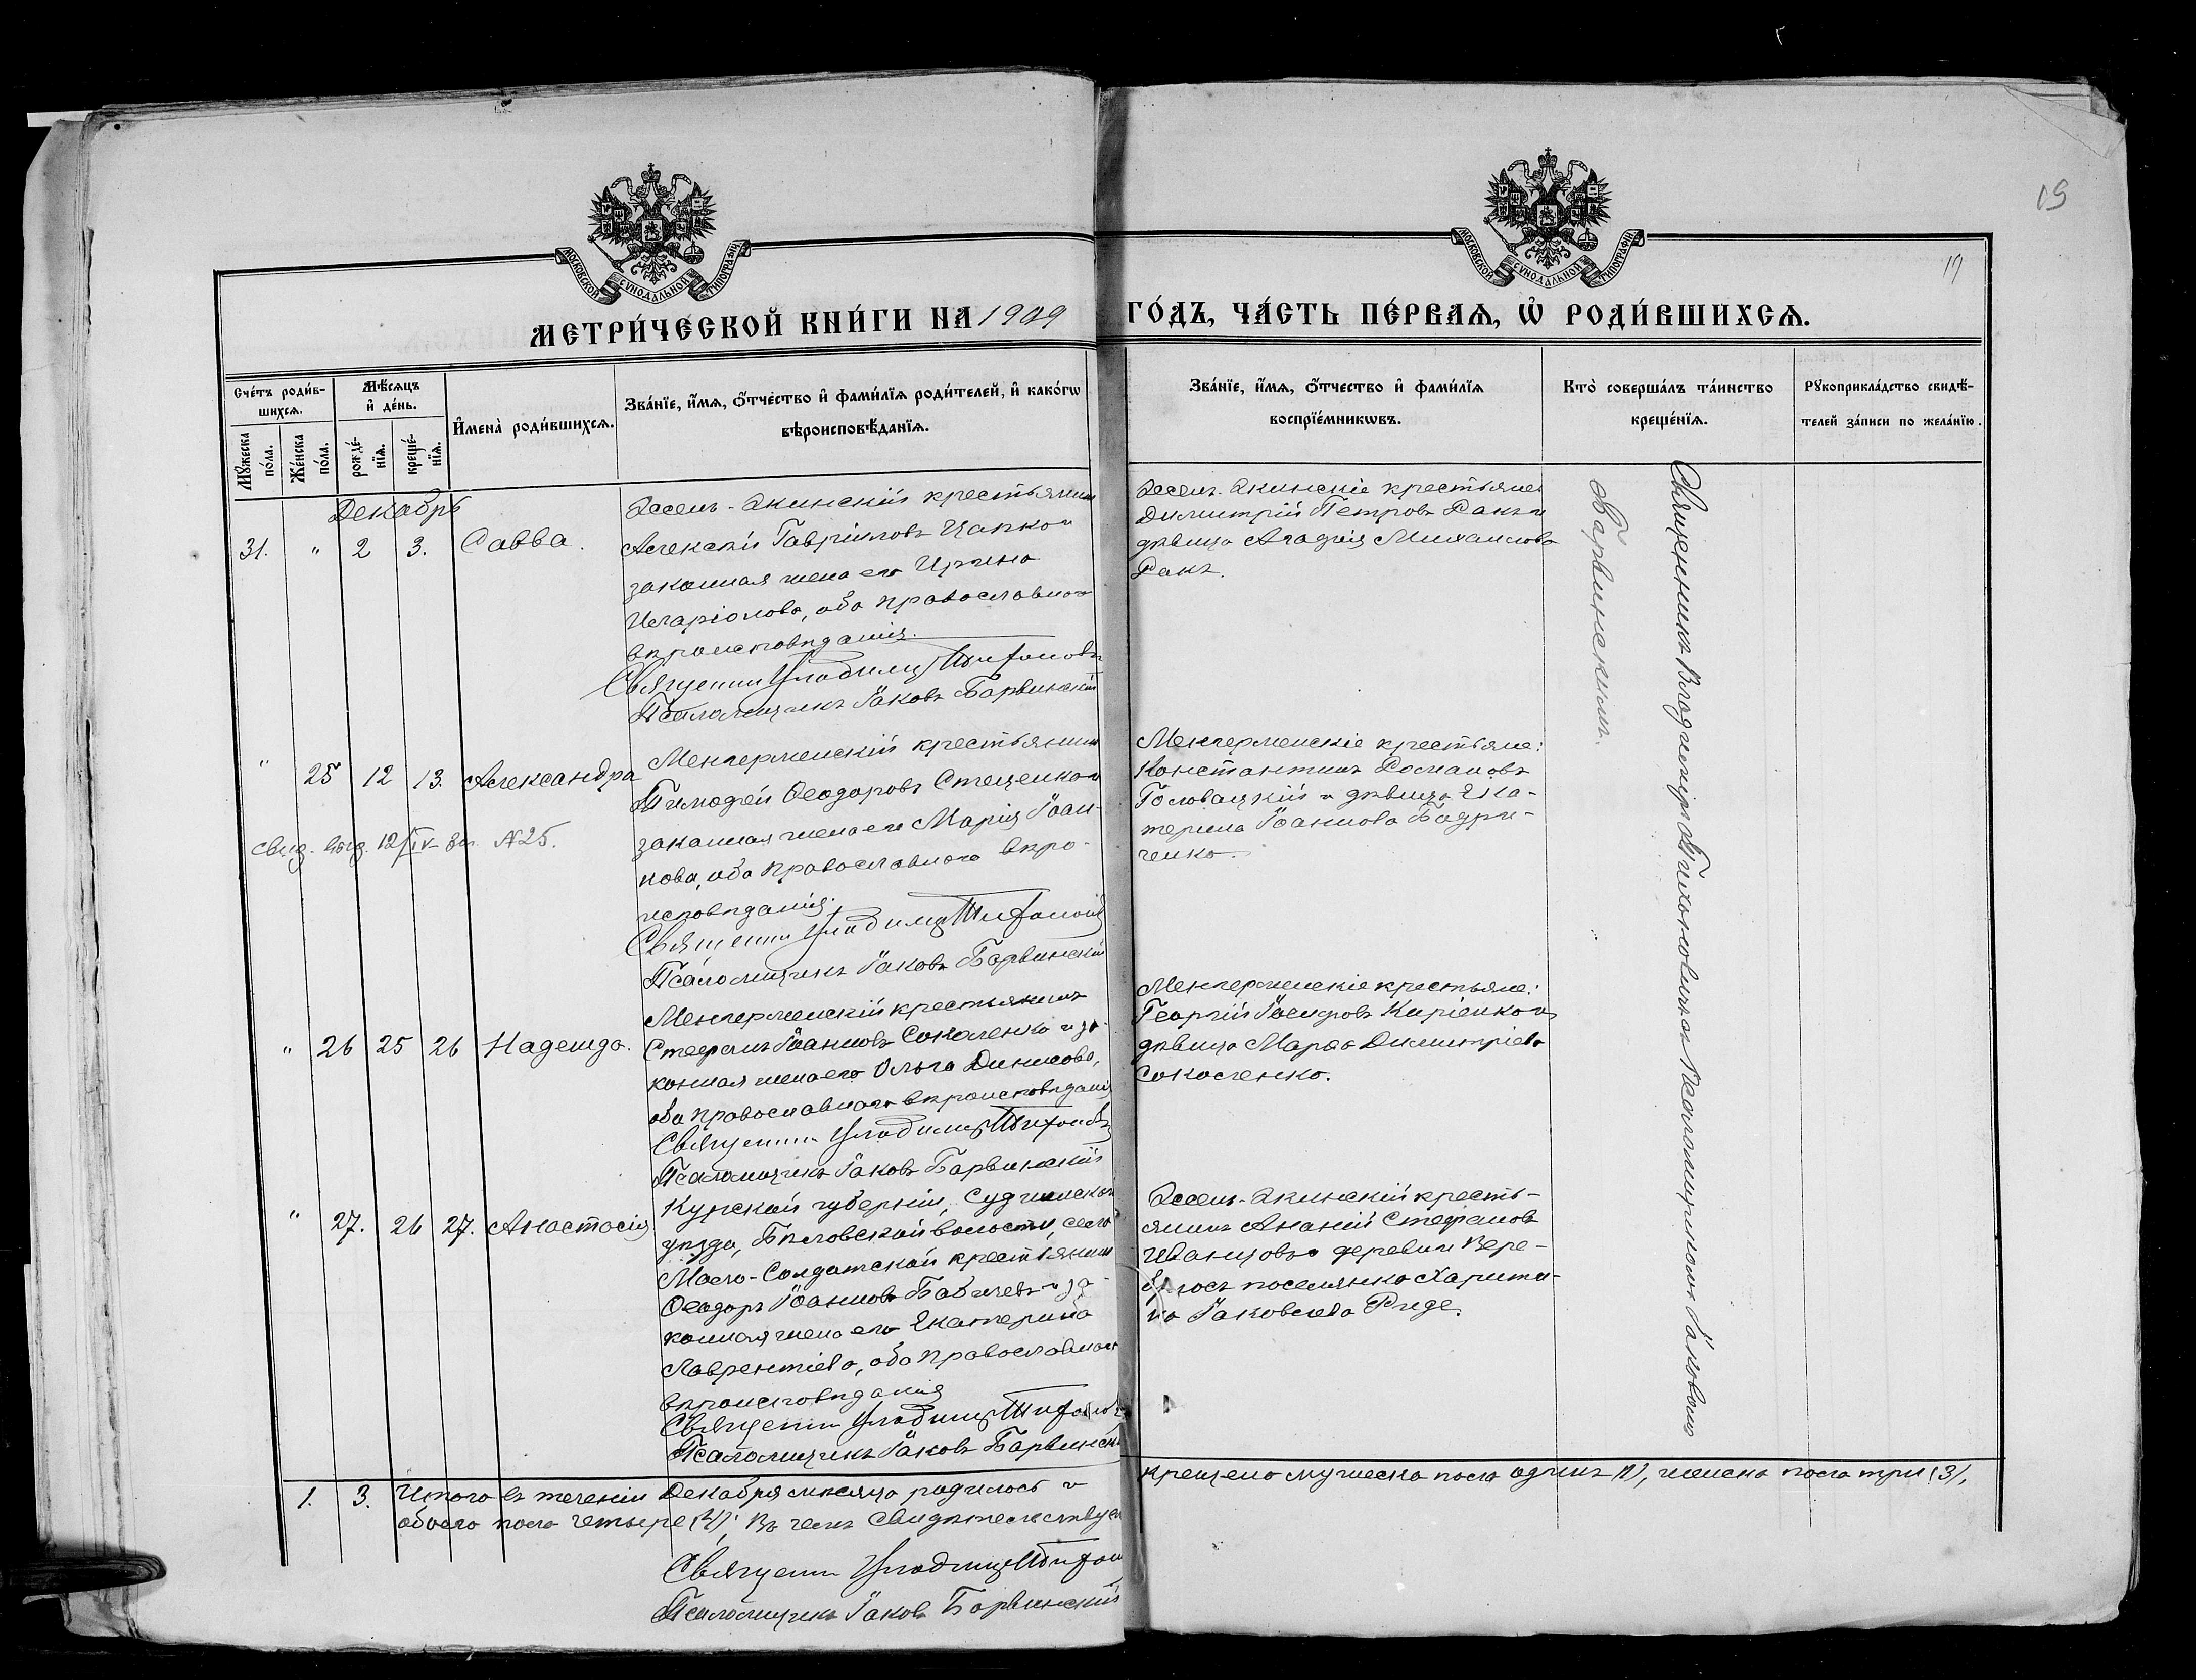 19
МОСКОВСКОЙ СѴНОДАЛЬНОЙ ТИПОГРАФІИ
МОСКОВСКОЙ СѴНОДАЛЬНОЙ ТИПОГРАФІИ
МЕТРИ́ЧЕСКОЙ КНИ́ГИ НА 1909 ГО́ДЪ, ЧА́СТЬ ПЕ́РВАѦ, Ѡ҆ РОДИ́ВШИХСѦ.
Сче́тъ роди́в-
шихсѧ.
Мꙋ́жеска по́ла.
Же́нска по́ла.
Мѣ́сѧцъ
и҆ де́нь.
рожде́-
нїѧ.
креще́-
нїѧ.
И҆мена̀ роди́вшихсѧ.
Зва́нїе, и҆́мѧ, ѻ҆́тчество и҆ фами́лїѧ роди́телей, и҆ како́гѡ
вѣроисповѣ́данїѧ.
Зва́нїе, и҆́мѧ, ѻ҆́тчество и҆ фами́лїѧ
воспрїе́мникѡвъ.
Кто̀ соверша́лъ та́инство
креще́нїѧ.
Рꙋкоприкла́дство свидѣ́-
телей за́писи по жела́нїю.
Декабрь
31. " 2 3. Савва.
крестьянинъ
Алексѣй Гавріиловъ Цапко и
законная жена его Ирина
Иларіонова, оба православнаго
вѣроисповѣданія.
Священникъ Владимір Тихонов
Псаломщикъ Іаковъ Барвинскій
крестьяне
Димитрій Петровъ Ракъ и
дѣвица Агафія Михаилова
Ракъ.
Священникъ Владиміръ Тихоновичъ съ псаломщикомъ Іаковомъ
Барвинскимъ.
" 25 12 13. Александра
Менгерменскій крестьянинъ
Тимофей Ѳеодоровъ Стеценко и
законная жена его Марія Іоан-
нова, оба православнаго вѣро-
исповѣданія.
Священникъ Владимір Тихонов
Псаломщикъ Іаковъ Барвинскій
Менгерменскіе крестьяне:
Константинъ Романовъ
Головацкій и дѣвица Ека-
терина Іоаннова Бодри-
ченко.
свид. выд. 12/IV № 25.
" 26 25 26 Надежда.
Менгерменскій крестьянинъ
Стефанъ Іоанновъ Соколенко и за-
конная жена его Ольга Динисова,
оба православнаго вѣроисповѣданія
Священникъ Владимір Тихонов
Псаломщикъ Іаковъ Барвинскій
Менгерменскіе крестьяне:
Георгій Іосифовъ Киріенко и
дѣвица Марѳа Димитріева
Соколенко.
" 27. 26 27. Анастасія
Курской губерніи, Суджанскаго
уѣзда, Бѣловской волости, села
Мало-Солдатской крестьянинъ
Ѳеодоръ Іоанновъ Бабичевъ и за-
конная жена его Екатерина
Лаврентіева, оба православнаго
вѣроисповѣданія
Священникъ Владимір Тихонов
Псаломщикъ Іаковъ Барвинскій
кресть-
янинъ Ананій Стефановъ
Иванцовъ и деревни
поселянка Харити-
на Іаковлева
1. 3. Итого въ теченіи Декабря мѣсяца родилось и крещено мужеска пола одинъ (1), женска пола три (3),
обоего пола четыре (4); въ чемъ свидѣтельствуемъ
Священникъ Владимір Тихонов
Псаломщикъ Іаковъ Барвинскій